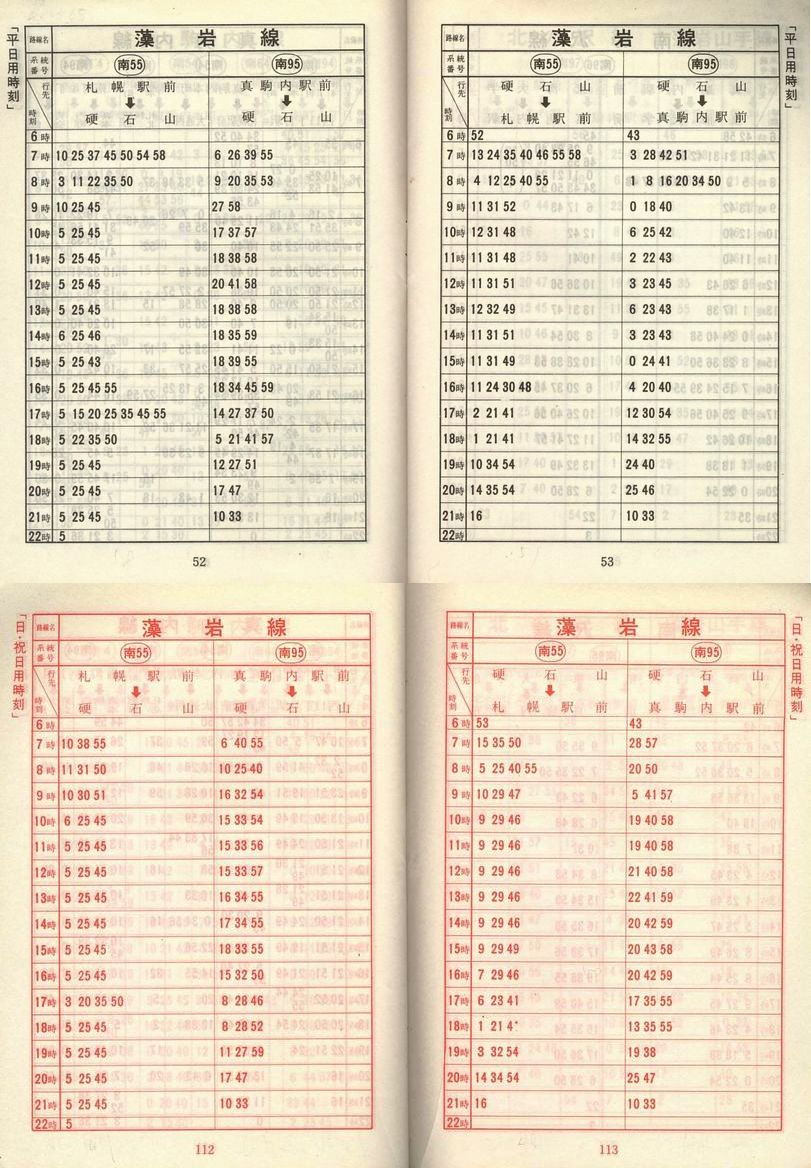 「平日用時刻」
路線名 藻岩線
系統番号 南55 南95
行先 時刻 札幌駅前 ⬇ 硬石山 真駒内駅前 ⬇ 硬石山
6時
7時 10 25 37 45 50 54 58 6 26 39 55
8時 3 11 22 35 50 9 20 35 53
9時 10 25 45 27 58
10時 5 25 45 17 37 57
11時 5 25 45 18 38 58
12時 5 25 45 20 41 58
13時 5 25 45 18 38 58
14時 6 25 46 18 35 59
15時 5 25 43 18 39 55
16時 5 25 45 55 18 34 45 59
17時 5 15 20 25 35 45 55 14 27 37 50
18時 5 22 35 50 5 21 41 57
19時 5 25 45 12 27 51
20時 5 25 45 17 47
21時 5 25 45 10 33
22時 5
52
「平日用時刻」
路線名 藻岩線
系統番号 南55 南95
行先 時刻 硬石山 ⬇ 札幌駅前 硬石山 ⬇ 真駒内駅前
6時 52 43
7時 13 24 35 40 46 55 58 3 28 42 51
8時 4 12 25 40 55 1 8 16 20 34 50
9時 11 31 52 0 18 40
10時 12 31 48 6 25 42
11時 11 31 48 2 22 43
12時 11 31 51 3 23 45
13時 12 32 49 6 23 43
14時 11 31 51 3 23 43
15時 11 31 49 0 24 41
16時 11 24 30 48 4 20 40
17時 2 21 41 12 30 54
18時 1 21 41 14 32 55
19時 10 34 54 24 40
20時 14 35 54 25 46
21時 16 10 33
22時
53
「日・祝日用時刻」
路線名 藻岩線
系統番号 南55 南95
行先 時刻 札幌駅前 ⬇ 硬石山 真駒内駅前 ⬇ 硬石山
6時
7時 10 38 55 6 40 55
8時 11 31 50 10 25 40
9時 10 30 51 16 32 54
10時 6 25 45 15 33 54
11時 5 25 45 15 33 56
12時 5 25 45 15 33 57
13時 5 25 45 16 34 55
14時 5 25 45 17 34 55
15時 5 25 45 18 33 55
16時 5 25 45 15 32 50
17時 3 20 35 50 8 28 46
18時 5 25 45 8 28 52
19時 5 25 45 11 27 59
20時 5 25 45 17 47
21時 5 25 45 10 33
22時 5
112
「日・祝日用時刻」
路線名 藻岩線
系統番号 南55 南95
行先 時刻 硬石山 ⬇ 札幌駅前 硬石山 ⬇ 真駒内駅前
6時 53 43
7時 15 35 50 28 57
8時 5 25 40 55 20 50
9時 10 29 47 5 41 57
10時 9 29 46 19 40 58
11時 9 29 46 19 40 58
12時 9 29 46 21 40 58
13時 9 29 46 22 41 59
14時 9 29 46 20 42 59
15時 9 29 49 20 43 58
16時 7 29 46 20 42 59
17時 6 23 41 17 35 55
18時 1 21 13 35 55
19時 3 32 54 19 38
20時 14 34 54 25 47
21時 16 10 33
22時
113